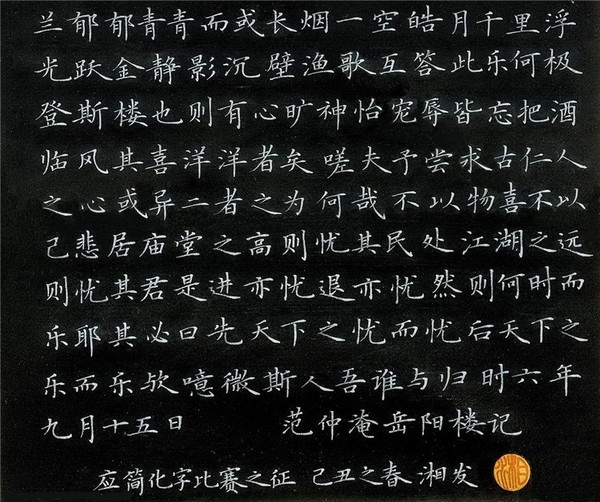 兰郁郁青青而或长烟一空皓月千里浮
光跃金静影沉壁渔歌互答此乐何极
登斯楼也则有心旷神怡宠辱皆忘把酒
临风其喜洋洋者矣嗟夫予尝求古仁人
之心或异二者之为何哉不以物喜不以
己悲居庙堂之高则忧其民处江湖之远
则忧其君是进亦忧退亦忧然则何时而
乐耶其必曰先天下之忧而忧后天下之
乐而乐欤噫微斯人吾谁与归时六年
九月十五日 范仲淹岳阳楼记
应简化字比赛之征 己丑之春 湘发